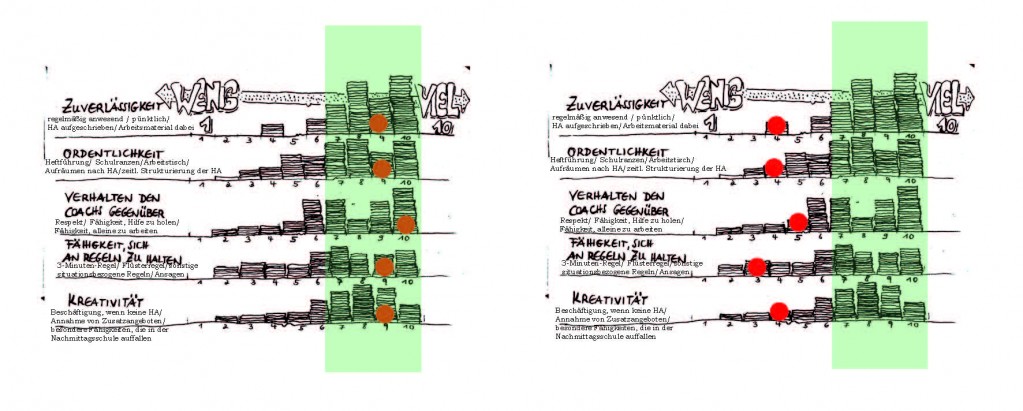 WENIG
VIEL
ZUVERLÄSSIGKEIT
1
10
regelmäßig anwesend / pünktlich/
HA aufgeschrieben/Arbeitsmaterial dabei
1 2 3 4 5 6 7 8 9 10
ORDENTLICHKEIT
Heftführung/ Schulranzen/Arbeitstisch/
Aufräumen nach HA/zeitl. Strukturierung der HA
1 2 3 4 5 6 7 8 9 10
VERHALTEN DEN
COACHS GEGENÜBER
Respekt/ Fähigkeit, Hilfe zu holen/
Fähigkeit, alleine zu arbeiten
1 2 3 4 5 6 7 8 9 10
FÄHIGKEIT, SICH
AN REGELN ZU HALTEN
3-Minuten-Regel/ Flüsterregel/sonstige
situationsbezogene Regeln/Ansagen
1 2 3 4 5 6 7 8 9 10
KREATIVITÄT
Beschäftigung, wenn keine HA/
Annahme von Zusatzangeboten/
besondere Fähigkeiten, die in der
Nachmittagsschule auffallen
1 2 3 4 5 6 7 8 9 10
WENIG
VIEL
ZUVERLÄSSIGKEIT
1
10
regelmäßig anwesend / pünktlich/
HA aufgeschrieben/Arbeitsmaterial dabei
1 2 3 4 5 6 7 8 9 10
ORDENTLICHKEIT
Heftführung/ Schulranzen/Arbeitstisch/
Aufräumen nach HA/zeitl. Strukturierung der HA
1 2 3 4 5 6 7 8 9 10
VERHALTEN DEN
COACHS GEGENÜBER
Respekt/ Fähigkeit, Hilfe zu holen/
Fähigkeit, alleine zu arbeiten
1 2 3 4 5 6 7 8 9 10
FÄHIGKEIT, SICH
AN REGELN ZU HALTEN
3-Minuten-Regel/ Flüsterregel/sonstige
situationsbezogene Regeln/Ansagen
1 2 3 4 5 6 7 8 9 10
KREATIVITÄT
Beschäftigung, wenn keine HA/
Annahme von Zusatzangeboten/
besondere Fähigkeiten, die in der
Nachmittagsschule auffallen
1 2 3 4 5 6 7 8 9 10